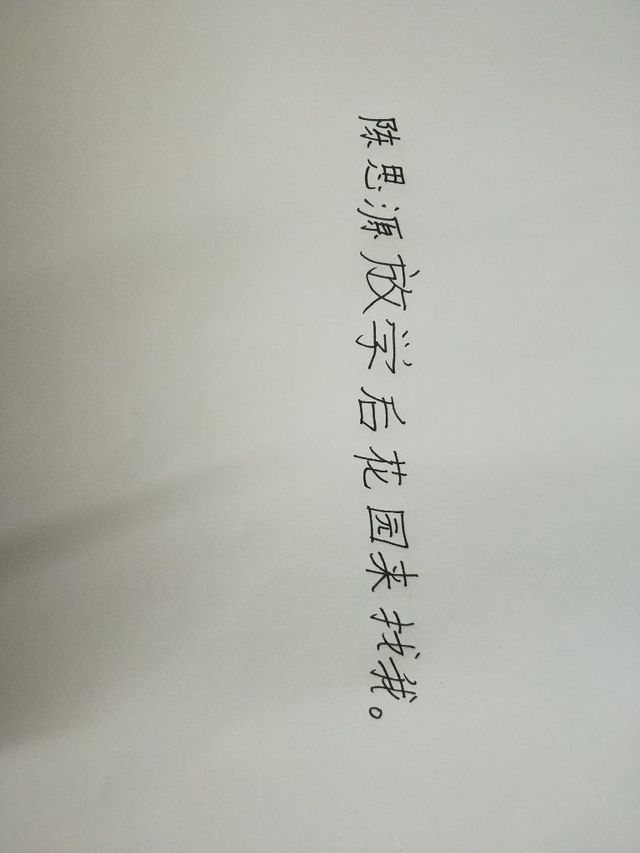 陈思源放学后花园来找我。